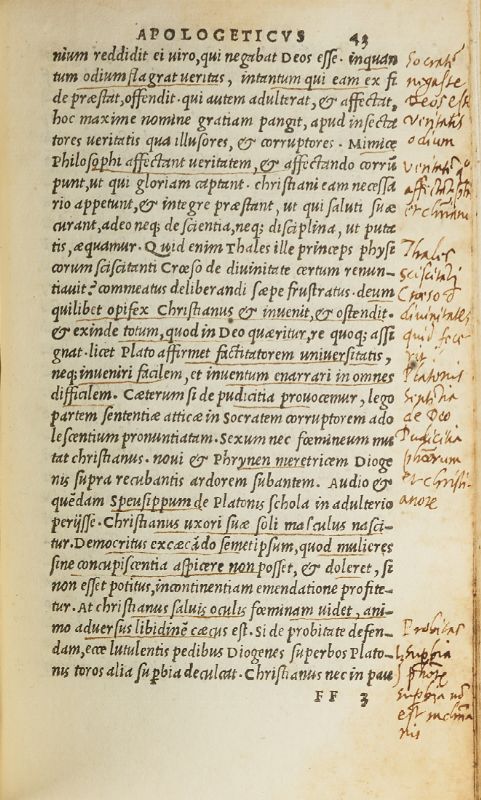 APOLOGETICVS 43
nium reddidit ei uiro, qui negabat Deos esse. inquan
tum odium flagrat ueritas, intantum qui eam ex fi
de præstat, offendit. qui autem adulterat, & affectat,
hoc maxime nomine gratiam pangit, apud insecta
tores ueritatis qua illusores, & corruptores. Mimice
Philosophi affectant ueritatem, & affectando corrū
punt, ut qui gloriam captant. christiani eam necessa
rio appetunt, & integre præstant, ut qui saluti suæ
curant, adeo neq; de scientia, neq; disciplina, ut puta
tis, æquamur. Quid enim Thales ille princeps physi
corum sciscitanti Crœso de diuinitate certum renun-
tiauit? commeatus deliberandi sæpe frustratus. deum
quilibet opifex Christianus & inuenit, & ostendit.
& exinde totum, quod in Deo quæritur, re quoq; assi
gnat. licet Plato affirmet factitatorem uniuersitatis,
neq; inueniri facilem, et inuentum enarrari in omnes
difficilem. Cæterum si de pudicitia prouocemur, lego
partem sententiæ atticæ in Socratem corruptorem ado
lescentium pronuntiatam. Sexum nec fœmineum mu
tat christianus. noui & Phrynen meretricem Dioge
nis supra recubantis ardorem subantem. Audio &
quēdam Speusippum de Platonis schola in adulterio
perijsse. Christianus uxori suæ soli masculus nasci-
tur. Democritus excæcādo semetipsum, quod mulieres
sine concupiscentia aspicere non posset, & doleret, si
non esset potitus, incontinentiam emendatione profite-
tur. At christianus saluis oculis fœminam uidet, ani-
mo aduersus libidinē cæcus est. Si de probitate defen-
dam, ecce lutulentis pedibus Diogenes superbos Plato-
nis toros alia supbia deculcat. Christianus nec in pau
FF 3
Socratē
negasse
Deos esse
Veritatis
odium
Thales
Croeso
diuinitatis
quid
Platonis
de Deo
Pudicitia
et christi
anorū
Probitas
supbia
supbia
est
nis